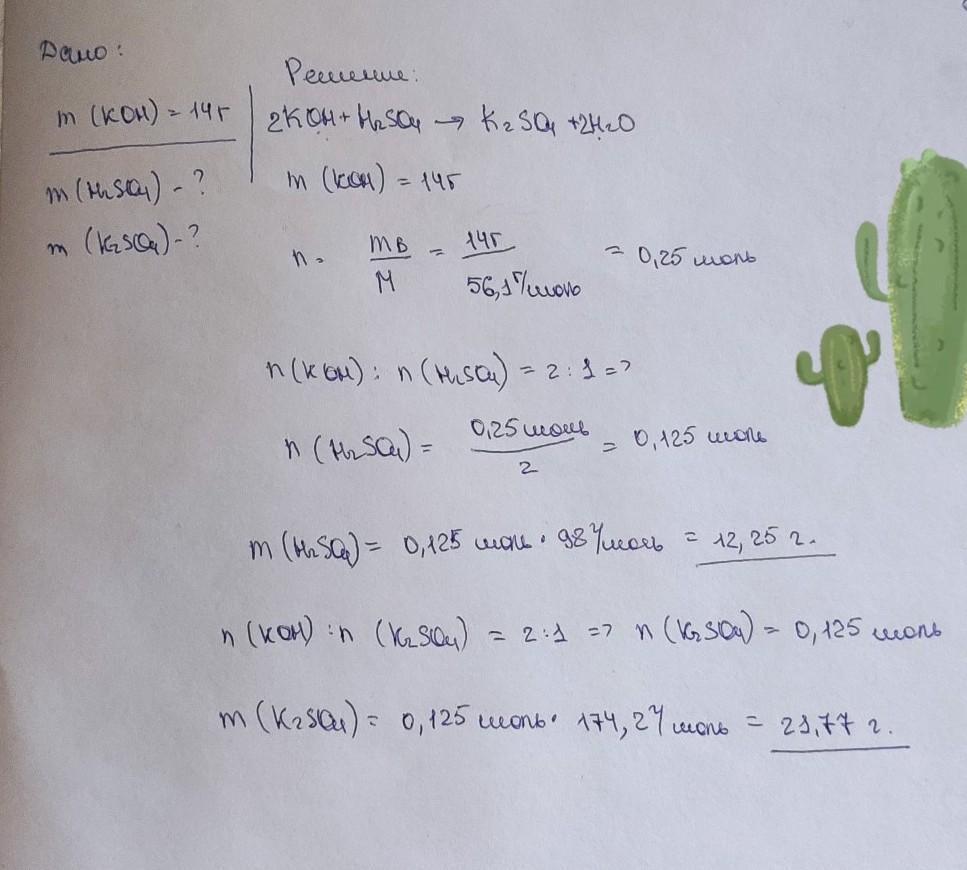 Дано:
Решение:
m (KOH) = 14г
2KOH + H₂SO₄ → K₂SO₄ + 2H₂O
m (H₂SO₄) - ?
m (KOH) = 14г
m (K₂SO₄) - ?
n = mв/M = 14г/56,1 г/моль = 0,25 моль
n(KOH) : n(H₂SO₄) = 2 : 1 =>
n (H₂SO₄) = 0,25 моль/2 = 0,125 моль
m (H₂SO₄) = 0,125 моль · 98 г/моль = 12,25 г.
n (KOH) : n (K₂SO₄) = 2:1 => n (K₂SO₄) = 0,125 моль
m (K₂SO₄) = 0,125 моль · 174,2 г/моль = 21,77 г.